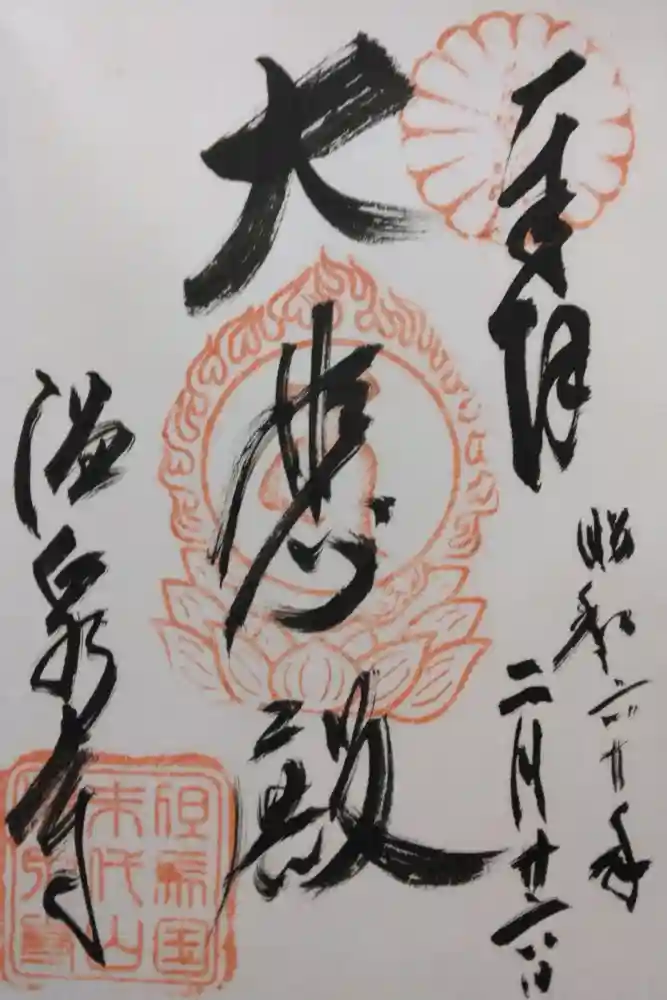 奉拝
昭和六十年
二月廿六日
大悲殿
温泉寺
但馬国
末代山